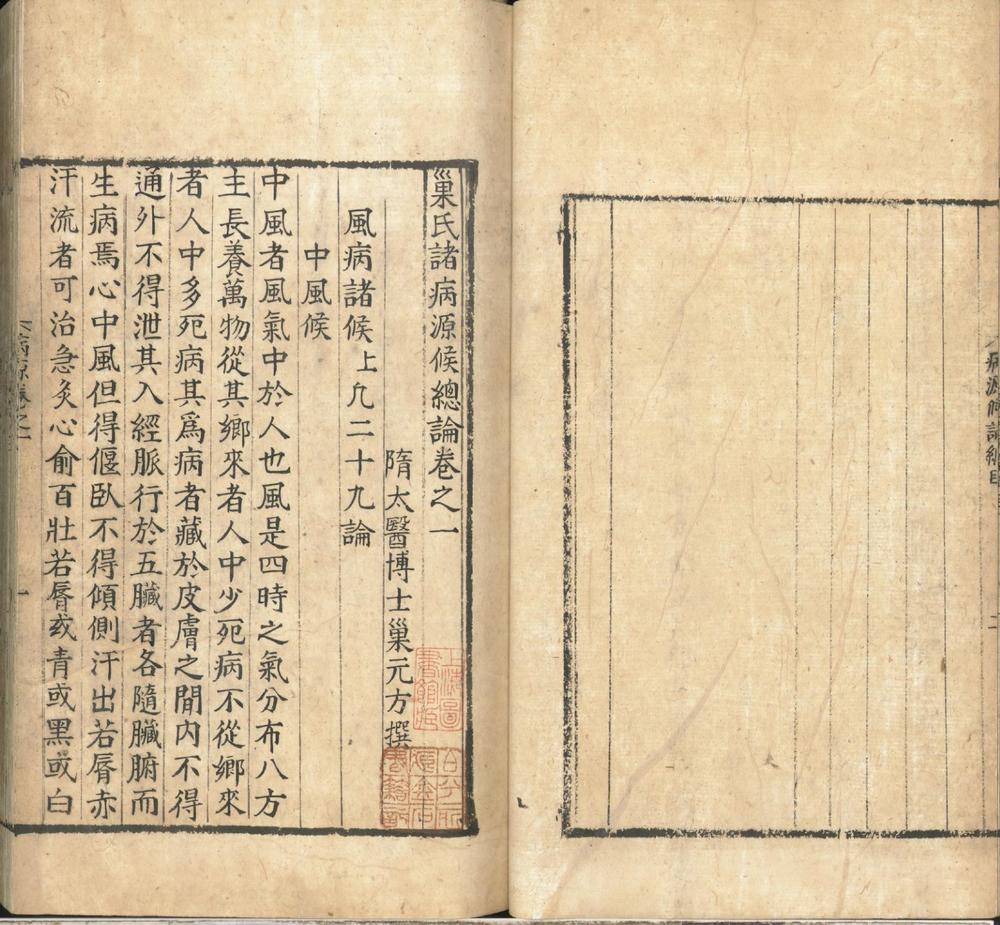 巢氏諸病源候總論卷之一
隋太醫博士巢元方撰
風病諸候上凢二十九論
中風候
中風者風氣中於人也風是四時之氣分布八方
主長養萬物從其鄉來者人中少死病不從鄉來
者人中多死病其爲病者藏於皮膚之間内不得
通外不得泄其入經脈行於五臟者各隨臟腑而
生病焉心中風但得偃臥不得傾側汗出若脣赤
汗流者可治急灸心俞百壯若脣或青或黑或白